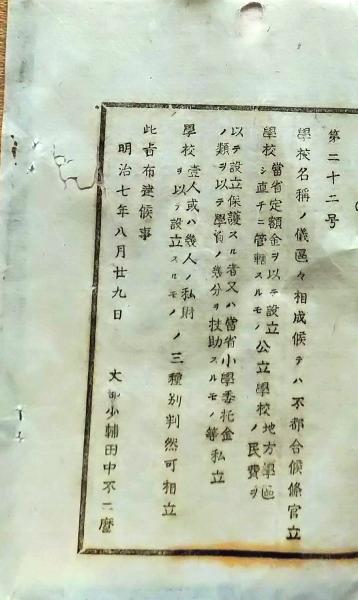 第二十二号
學校名稱ノ儀區々相成候テハ不都合候條官立
學校 當省定額金ヲ以テ設立シ直チニ管轄スルモノ 公立學校 地方學區ノ民費ヲ
以テ設立保護スル者又ハ當省小學委托金ノ類ヲ以テ學資ノ幾分ヲ扶助スルモノ等 私立
學校 壹人或ハ幾人ノ私財ヲ以テ設立スルモノ ノ三種別判然可相立
此旨布達候事
明治七年八月廿九日
文部少輔田中不二麿